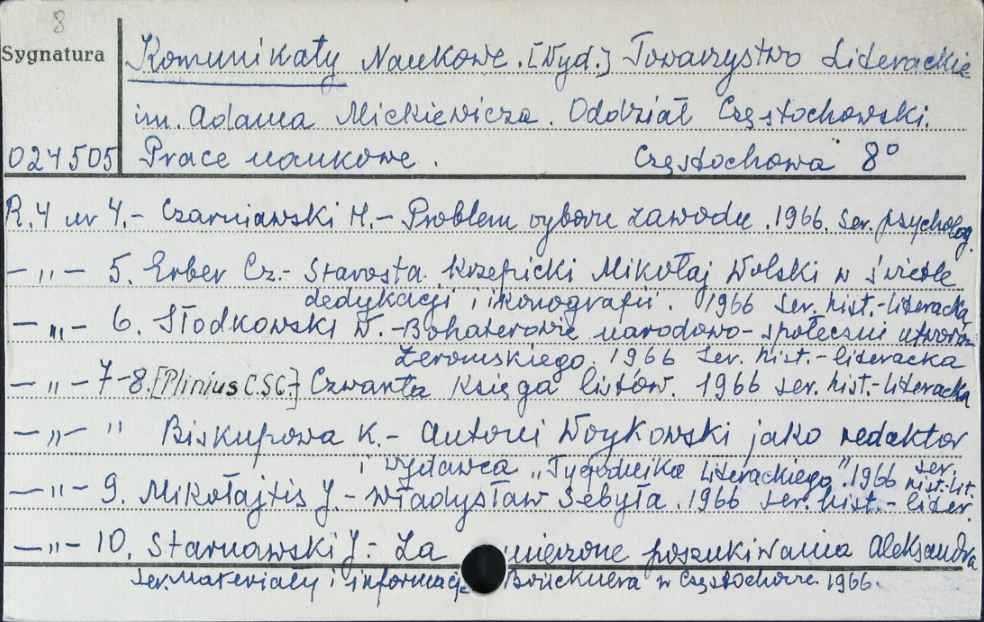 8
Sygnatura
Komunikaty Naukowe. [Wyd.] Towarzystwo Literackie
im. Adama Mickiewicza. Oddział Częstochowski.
024505 Prace naukowe. Częstochowa 8°
R.4 nr 4.- Czarniawski H.- Problem wyboru zawodu. 1966. Ser. psycholog.
-"- 5. Erber Cz.- Starosta krzepicki Mikołaj Wolski w świetle
dedykacji i ikonografii. 1966 ser. hist.-literacka
-"- 6. Słodkowski W.-Bohaterowie narodowo-społeczni utworów
Żeromskiego. 1966 ser. hist.-literacka
-"- 7-8. [Plinius C.S.C.]- Czwarta księga listów. 1966 ser. hist.-literacka
-"- " Biskupowa K.- Antoni Woykowski jako redaktor
i wydawca "Tygodnika Literackiego". 1966 ser. hist.-lit.
-"- 9. Mikołajtis J.- Władysław Sebyła. 1966 ser. hist.-liter.
-"- 10. Starnawski J.- Za mierzone poszukiwania Aleksandra
Ser. Materiały i informacje Brücknera w Częstochowie 1966.